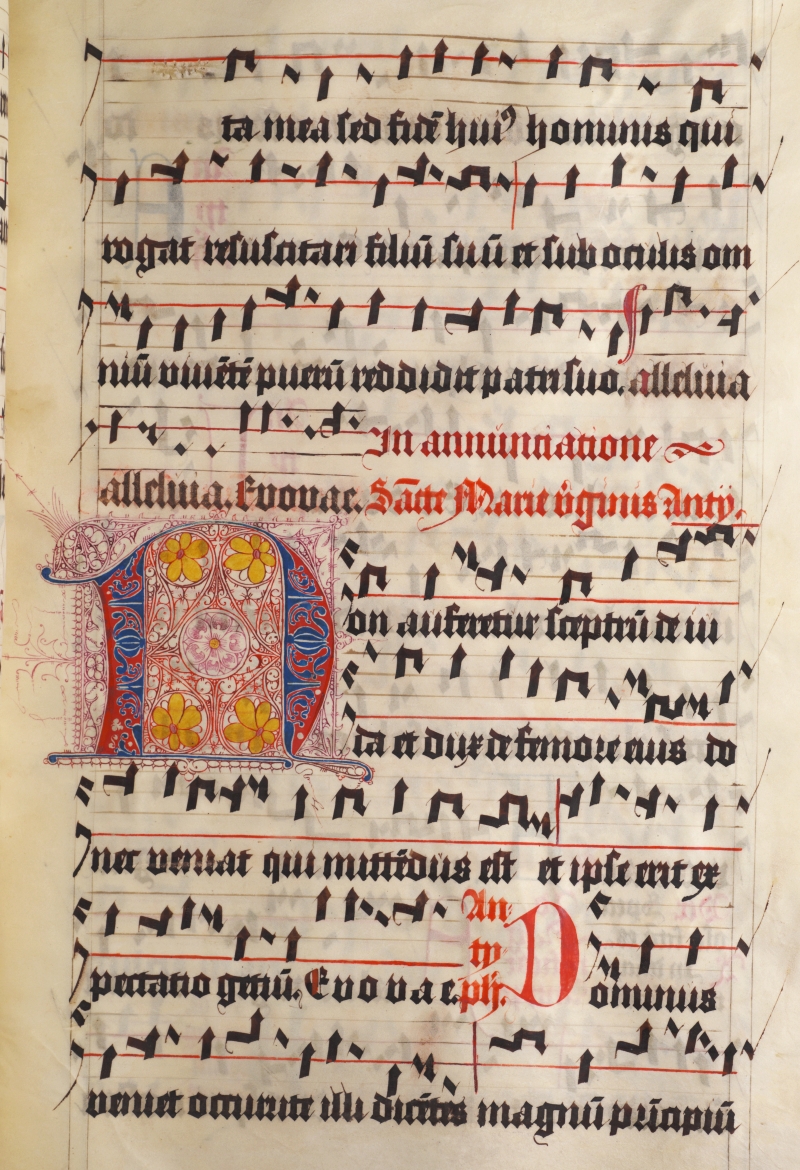 ta mea sed fidē huiꝰ hominis qui
rogat resuscitari filiū suū et sub oculis om
niū viuētē puerū reddidit patri suo. alleluia
In annunciatione
alleluia. Evovae. Sācte Marie v̄ginis Anty.
Non auferetur sceptrū de iu
da et dux de femore eius do
nec veniat qui mittēdus est et ipse erit ex
An
ty
pectatio gētiū. Evovae. ph. Dominus
veniet occurrite illi dicētes magnū prīcipiū